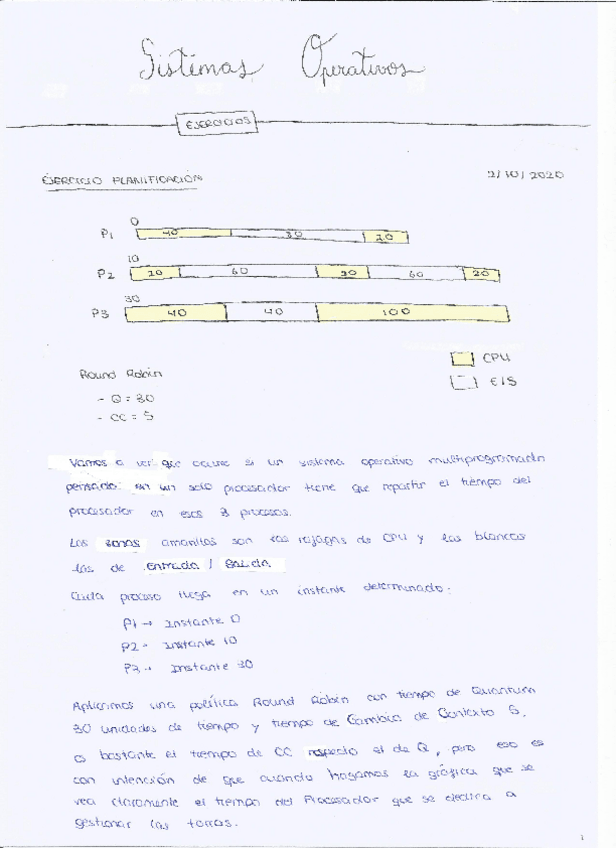 Sistemas Operativos
EJERCICIOS
EJERCICIO PLANIFICACIÓN
2/10/2020
0
P1 40 80 20
10
P2 20 60 30 60 20
30
P3 40 40 100
CPU
E/S
Round Robin
- Q = 30
- CC = 5
Vamos a ver que ocurre si un sistema operativo multiprogramado
pensado en un solo procesador tiene que repartir el tiempo del
procesador en esos 3 procesos.
Las zonas amarillas son las ráfagas de CPU y las blancas
las de Entrada / Salida.
Cada proceso llega en un instante determinado:
P1 → Instante 0
P2 → Instante 10
P3 → Instante 30
Aplicamos una política Round Robin con tiempo de Quantum
30 unidades de tiempo y tiempo de Cambio de Contexto 5,
es bastante el tiempo de CC respecto el de Q, pero eso es
con intención de que cuando hagamos la gráfica que se
vea claramente el tiempo del Procesador que se dedica a
gestionar las
1